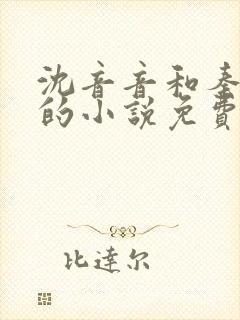 沈音音和秦
的小說免費
比達尔